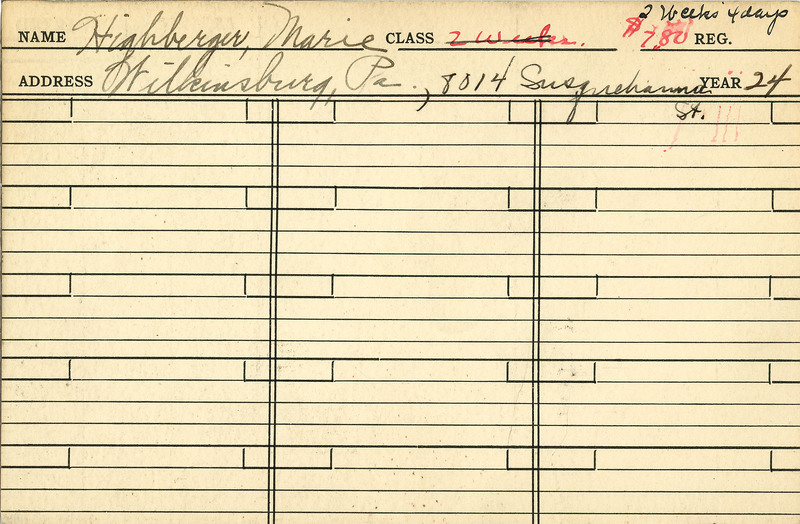 2 Weeks 4 days
NAME Highberger, Marie CLASS 2 Weeks. $7.80 REG.
ADDRESS Wilkinsburg, Pa., 8014 Susquehanna YEAR 24
St.